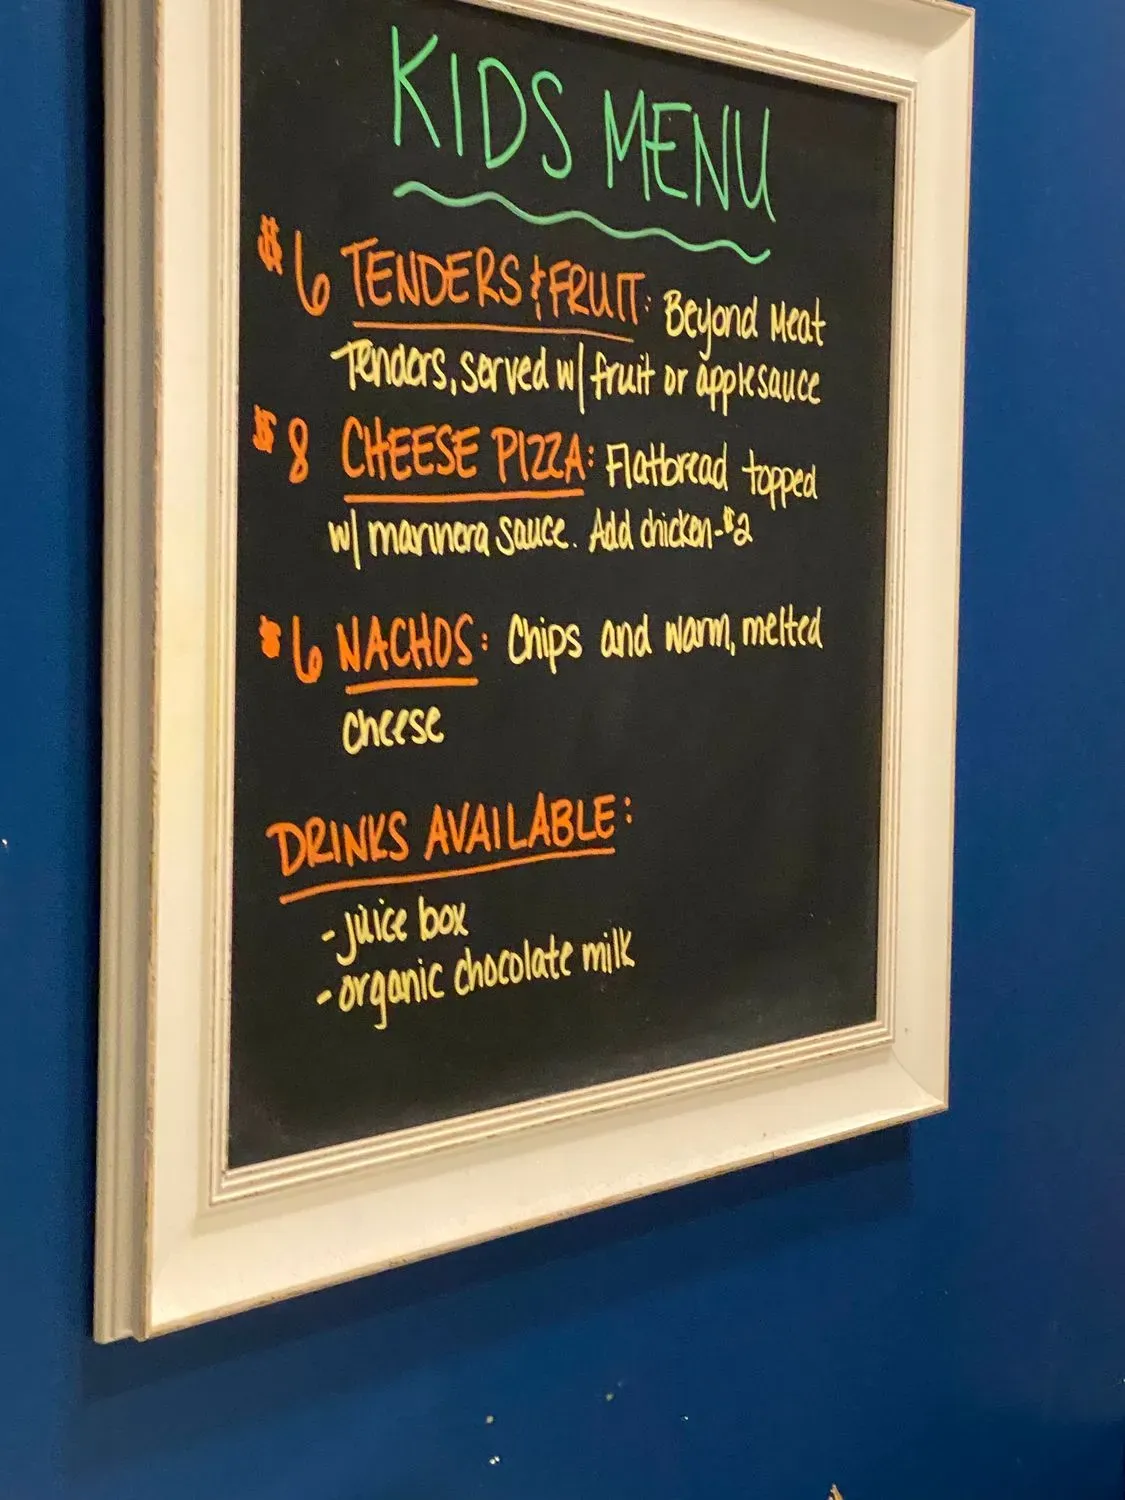 KIDS MENU
$6 TENDERS & FRUIT: Beyond Meat
Tenders, served w/ fruit or applesauce
$8 CHEESE PIZZA: Flatbread topped
w/ marinera sauce. Add chicken-$2
$6 NACHOS: Chips and warm, melted
cheese
DRINKS AVAILABLE:
- juice box
- organic chocolate milk